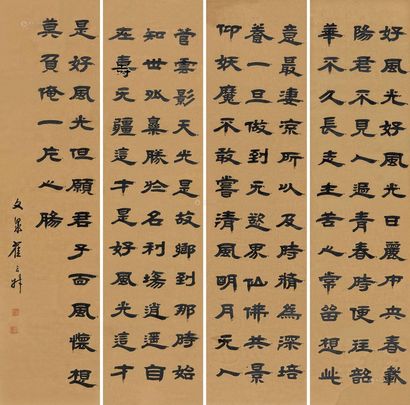 好風光好風光麗中央春載
陽君不見人過青春時便汪韶
華不久長走土苦心常笛想此
意最凄凉所以及時精為深培
養一旦做到无慾界仙佛共景
仰妖魔不敢嘗清風明月无人
管雲影天光是故鄉到那時始
知世外桌勝於名利場逍遥自
在壽无疆這才是好風光這才
是好風光但願君子面風懷想
莫負俺一片心腸
文景崔